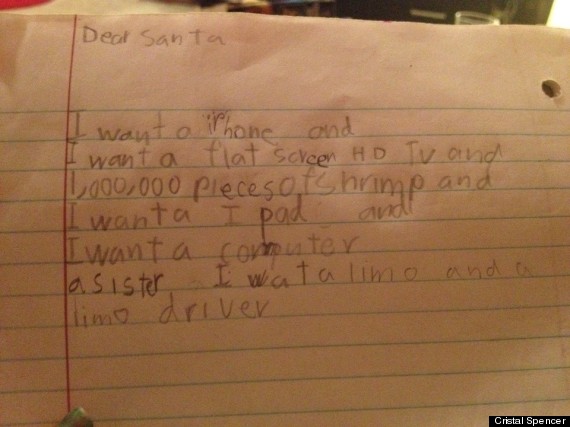 Dear Santa
I want a iphone and
I want a flat screen HD Tv and
1,000,000 pieces of shrimp and
I want a I pad and
I want a computer
a sister I wat a limo and a
limo driver
Cristal Spencer